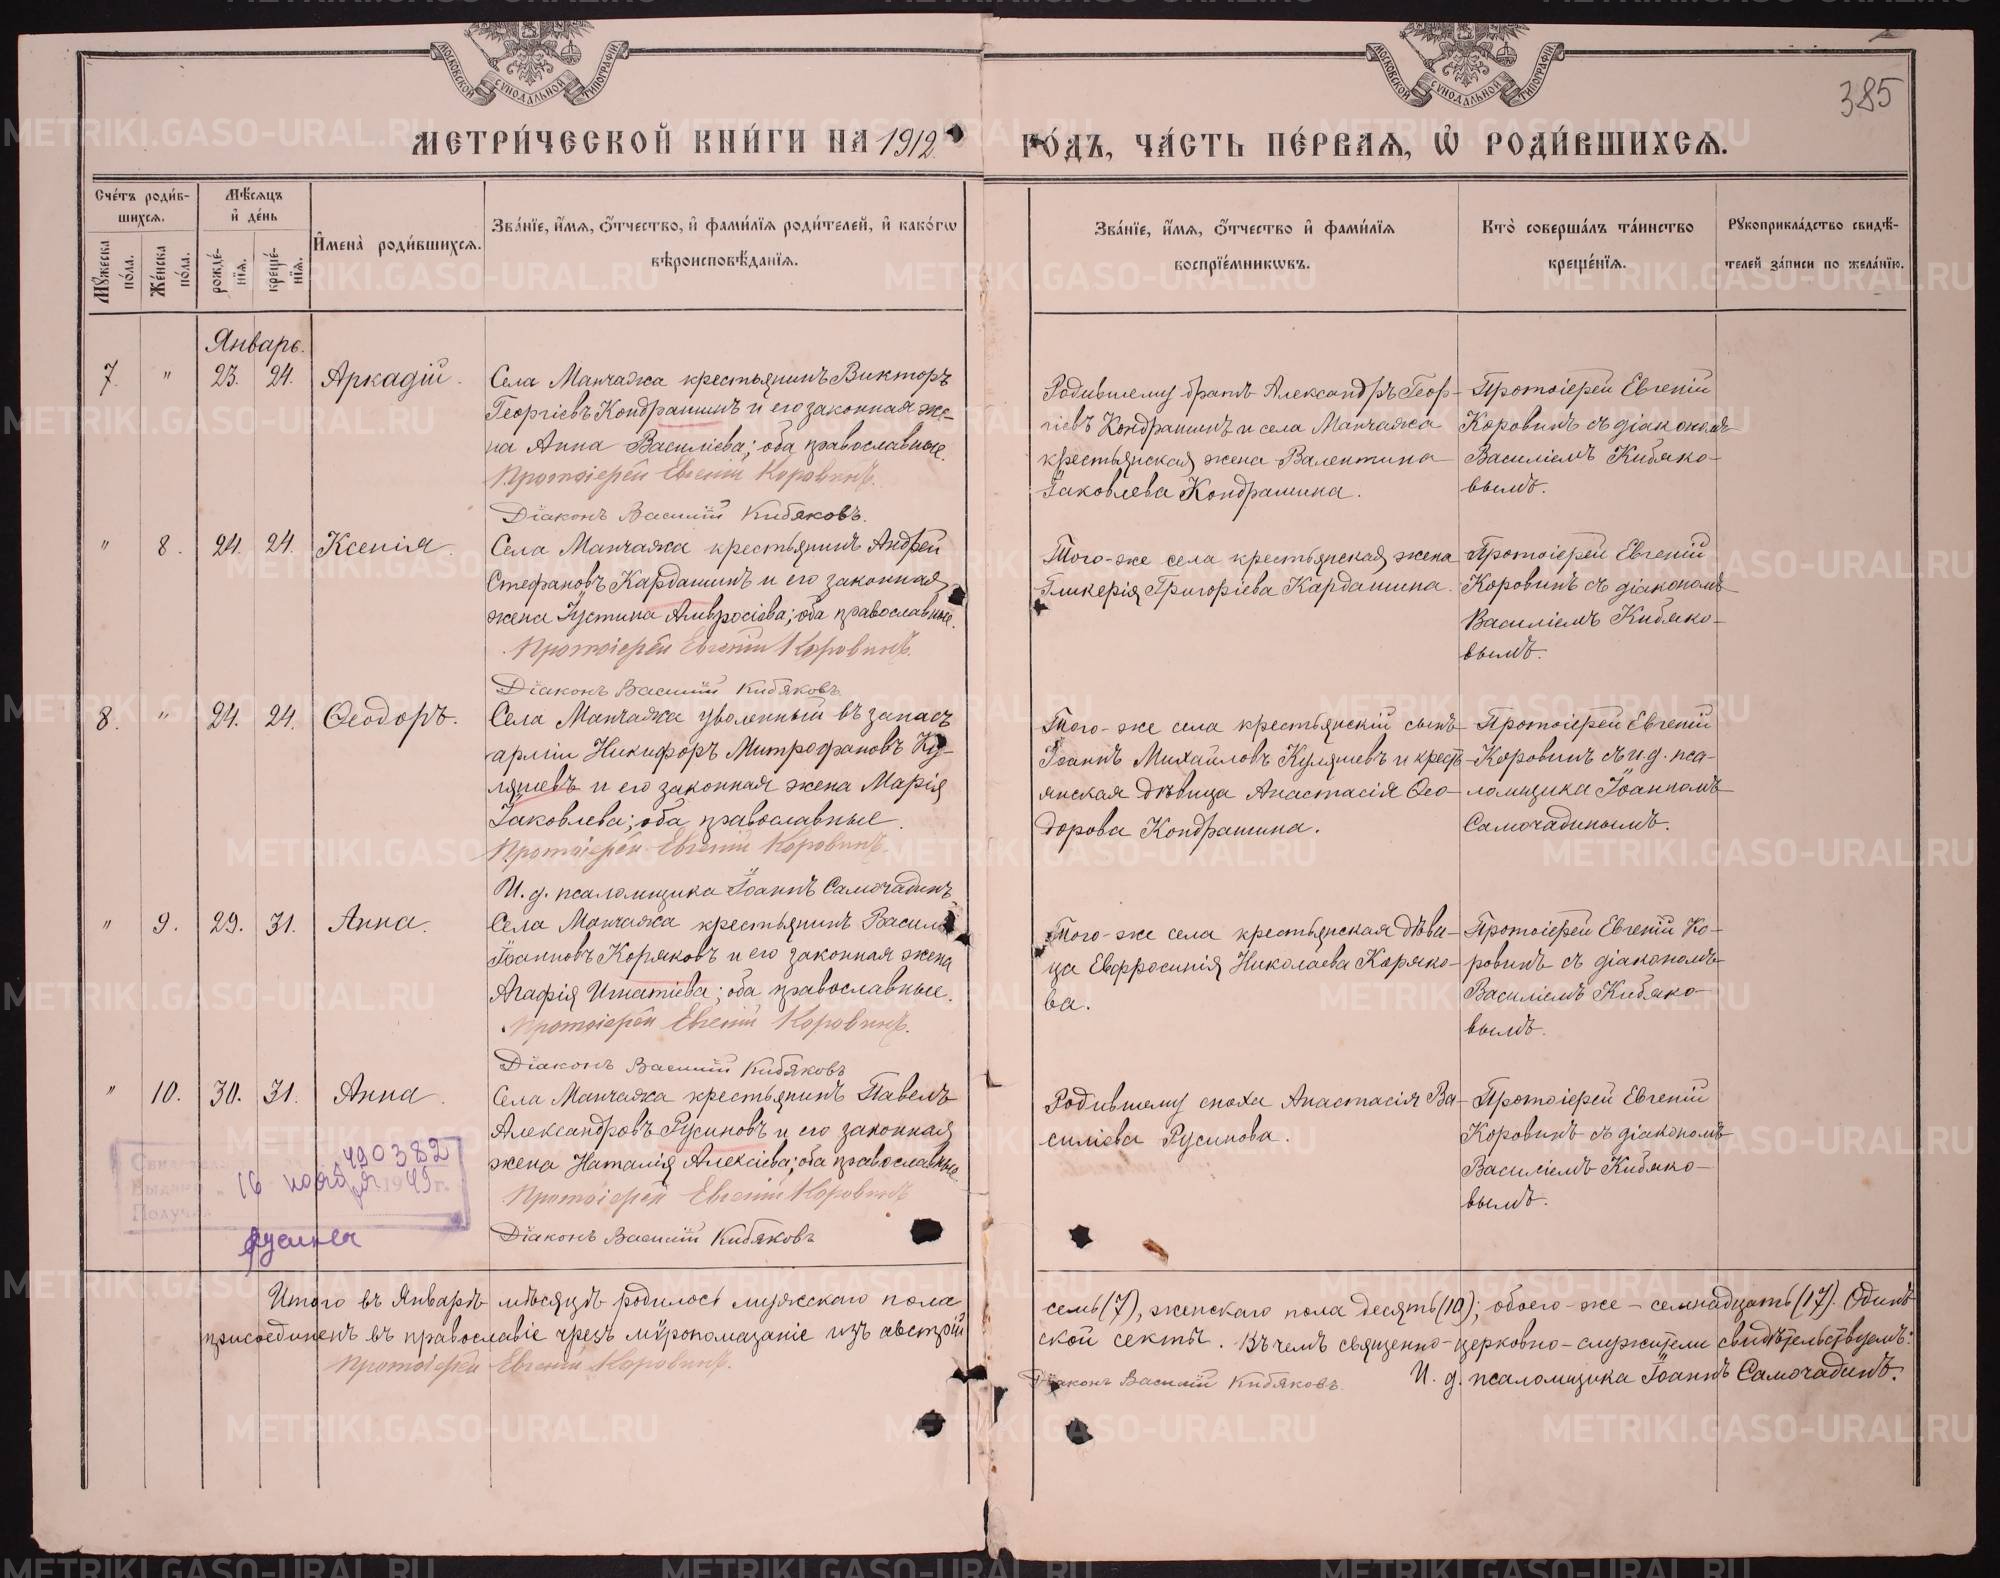 МОСКОВСКОЙ СѴНОДАЛЬНОЙ ТИПОГРАФІИ
МОСКОВСКОЙ СѴНОДАЛЬНОЙ ТИПОГРАФІИ
385
МЕТРИ́ЧЕСКОЙ КНИ́ГИ НА 1912 ГО́ДЪ, ЧА́СТЬ ПЕ́РВАЯ, Ѡ҆ РОДИ́ВШИХСЯ.
Сче́тъ роди́в-
шихся.
Мꙋ́жеска по́ла.
Же́нска по́ла.
Мѣ́сяцъ
и҆ де́нь
рожде́-
нїя.
креще́-
нїя.
И҆мена̀ роди́вшихся.
Зва́нїе, и҆́мя, ѻ҆́тчество, и҆ фами́лїя роди́телей, и҆ како́гѡ
вѣроисповѣ́данїя.
Зва́нїе, и҆́мя, ѻ҆́тчество и҆ фами́лїя
воспрїе́мникѡвъ.
Кто̀ соверша́лъ та́инство
креще́нїя.
Рꙋкоприкла́дство свидѣ́-
телей за́писи по жела́нїю.
Январь.
7. " 23. 24. Аркадій.
Села Манчажа крестьянинъ Викторъ
Георгіевъ Кондрашинъ и его законная же-
на Анна Василіева; оба православные.
Протоіерей Евгеній Коровинъ.
Діаконъ Василій Кибяковъ.
Родившему братъ Александръ Геор-
гіевъ Кондрашинъ и села Манчажа
крестьянская жена Валентина
Іаковлева Кондрашина.
Протоіерей Евгеній
Коровинъ съ діакономъ
Василіемъ Кибяко-
вымъ.
" 8. 24. 24. Ксенія.
Села Манчажа крестьянинъ Андрей
Стефановъ Кардашинъ и его законная
жена Іустина Амвросіева; оба православные.
Протоіерей Евгеній Коровинъ.
Діаконъ Василій Кибяковъ.
Того-же села крестьянская жена
Гликерія Григоріева Кардашина.
Протоіерей Евгеній
Коровинъ съ діакономъ
Василіемъ Кибяко-
вымъ.
8. " 24. 24. Ѳеодоръ.
Села Манчажа уволенный въ запасъ
арміи Никифоръ Митрофановъ Ку-
ляшевъ и его законная жена Марія
Іаковлева; оба православные.
Протоіерей Евгеній Коровинъ.
И. д. псаломщика Іоаннъ Самочадинъ
Того-же села крестьянскій сынъ
Іоаннъ Михайловъ Куляшевъ и кресть-
янская дѣвица Анастасія Ѳео-
дорова Кондрашина.
Протоіерей Евгеній
Коровинъ съ и. д. пса-
ломщика Іоанномъ
Самочадинымъ.
" 9. 29. 31. Анна.
Села Манчажа крестьянинъ
Іоанновъ Коряковъ и его законная жена
Агафія Игнатіева; оба православные.
Протоіерей Евгеній Коровинъ.
Діаконъ Василій Кибяковъ
Того-же села крестьянская дѣви-
ца Евфросинія Николаева Коряко-
ва.
Протоіерей Евгеній Ко-
ровинъ съ діакономъ
Василіемъ Кибяко-
вымъ.
" 10. 30. 31. Анна.
Села Манчажа крестьянинъ Павелъ
Александровъ Русиновъ и его законная
жена Наталія Алексіева; оба православные
Протоіерей Евгеній Коровинъ
Діаконъ Василій Кибяковъ
Родившему сноха Анастасія Ва-
силіева Русинова.
Протоіерей Евгеній
Коровинъ съ діакономъ
Василіемъ Кибяко-
вымъ.
490382
16 ноября 1949 г.
Итого въ Январѣ мѣсяцѣ родилось мужескаго пола семь (7), женскаго пола десять (10); обоего-же - семнадцать (17). Одинъ
присоединенъ въ православіе чрезъ мѵропомазаніе изъ австрійской секты. Въ чемъ священно-церковно-служители свидѣтельствуемъ:
Протоіерей Евгеній Коровинъ. Діаконъ Василій Кибяковъ. И. д. псаломщика Іоаннъ Самочадинъ.
METRIKI.GASO-URAL.RU